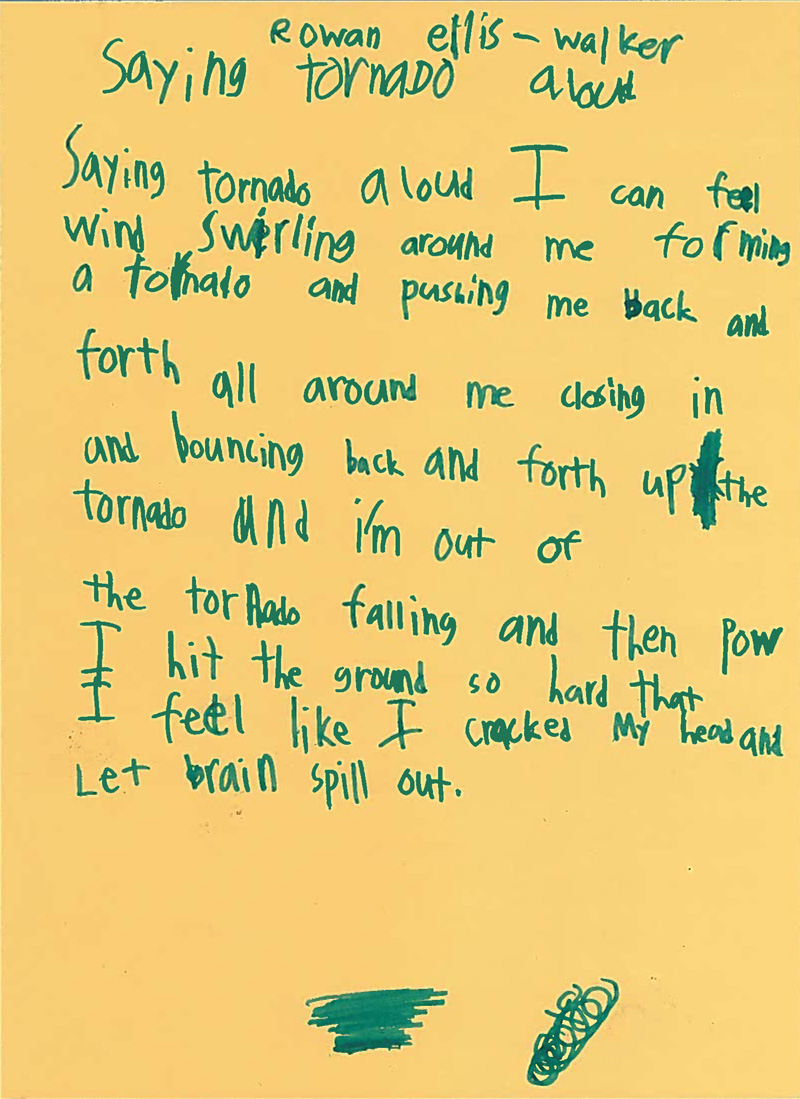 Rowan ellis-walker
Saying tornado aloud
Saying tornado aloud I can feel
wind swirling around me forming
a tornato and pushing me back and
forth all around me closing in
and bouncing back and forth up the
tornado and i'm out of
the tornado falling and then pow
I hit the ground so hard that
I feel like I cracked My head and
Let brain spill out.